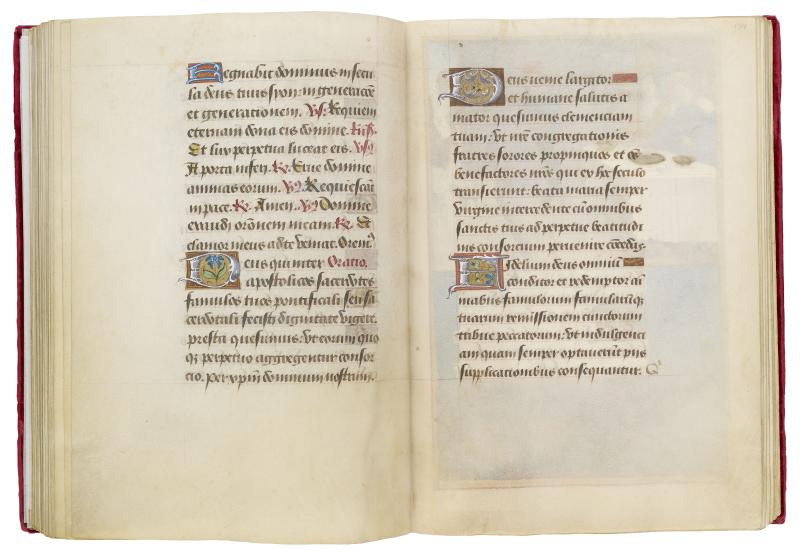 Regnabit dominus in secu
la deus tuus syon: in generacoē
et generationem. Vs. Requiem
eternam dona eis domine. Ps.
Et lux perpetua luceat eis. Vs.
A porta inferi. R. Erue domine
animas eorum. Vs. Requiescāt
in pace. R. Amen. Vs. Domine
exaudi orōnem meam. R. Et
clamor meus ad te veniat. Orem⁹
Deus qui inter Oratio.
apostolicos sacerdotes
famulos tuos pontificali seu sa
cerdotali fecisti dignitate vigere.
presta quesumus: vt eorum quo
q; perpetuo aggregentur consor
cio. Per xpm̄ dominum nostrum.
Deus uenie largitor
et humane salutis a
mator quesumus clementiam
tuam: vt nr̄e congregationis
fratres sorores propinquos et
benefactores nr̄os qui ex hoc seculo
transierunt: beata maria semper
virgine intercedente cū omnibus
sanctis tuis ad perpetue beatitudi
nis consorcium peruenire concedas.
Fidelium deus omniū
conditor et redemptor ani
mabus famulorum famularūq;
tuarum remissionem cunctorum
tribue peccatorum: vt indulgenci
am quam semper optauerūt piis
supplicationibus consequantur. Q